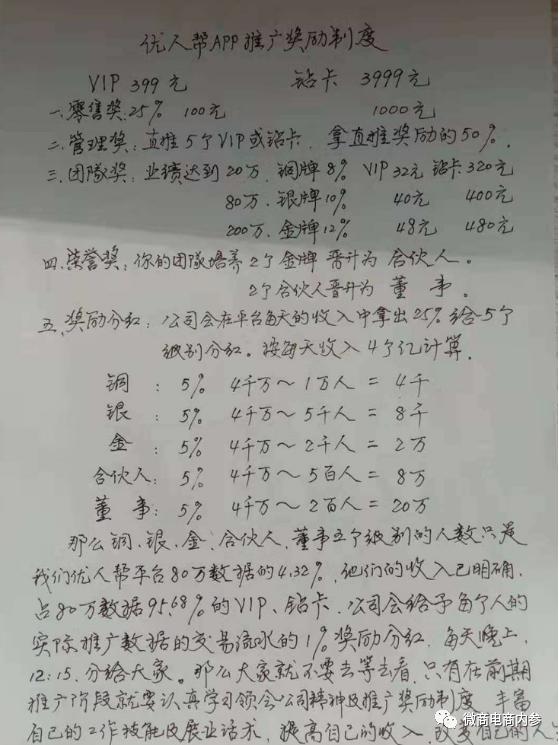 优人帮APP推广奖励制度
VIP 399元 钻卡 3999元
一.零售奖:25% 100元 1000元
二.管理奖:直推5个VIP或钻卡,拿直推奖励的50%.
三.团队奖:业绩达到20万.铜牌8% VIP 32元 钻卡320元
80万.银牌10% 40元 400元
200万.金牌12% 48元 480元
四.荣誉奖:你的团队培养2个金牌晋升为合伙人。
2个合伙人晋升为董事。
五.奖励分红:公司会在平台每天的收入中拿出25%给5个
级别分红。按每天收入4个亿计算.
铜:5% 4千万~1万人=4千
银:5% 4千万~5千人=8千
金:5% 4千万~2千人=2万
合伙人:5% 4千万~5百人=8万
董事:5% 4千万~2百人=20万
那么铜、银、金、合伙人、董事五个级别的人数只是
我们优人帮平台80万数据的4.32%,他们的收入已明确.
占80万数据95.68%的VIP、钻卡.公司会给予每个人的
实际推广数据的交易流水的1%奖励分红.每天晚上.
12:15.分给大家。那么大家就不要去等去看.只有在前期
推广阶段就要认真学习领会公司精神及推广奖励制度.丰富
自己的工作技能及展业话术,提高自己的收入.改变自己的人
微商电商内参